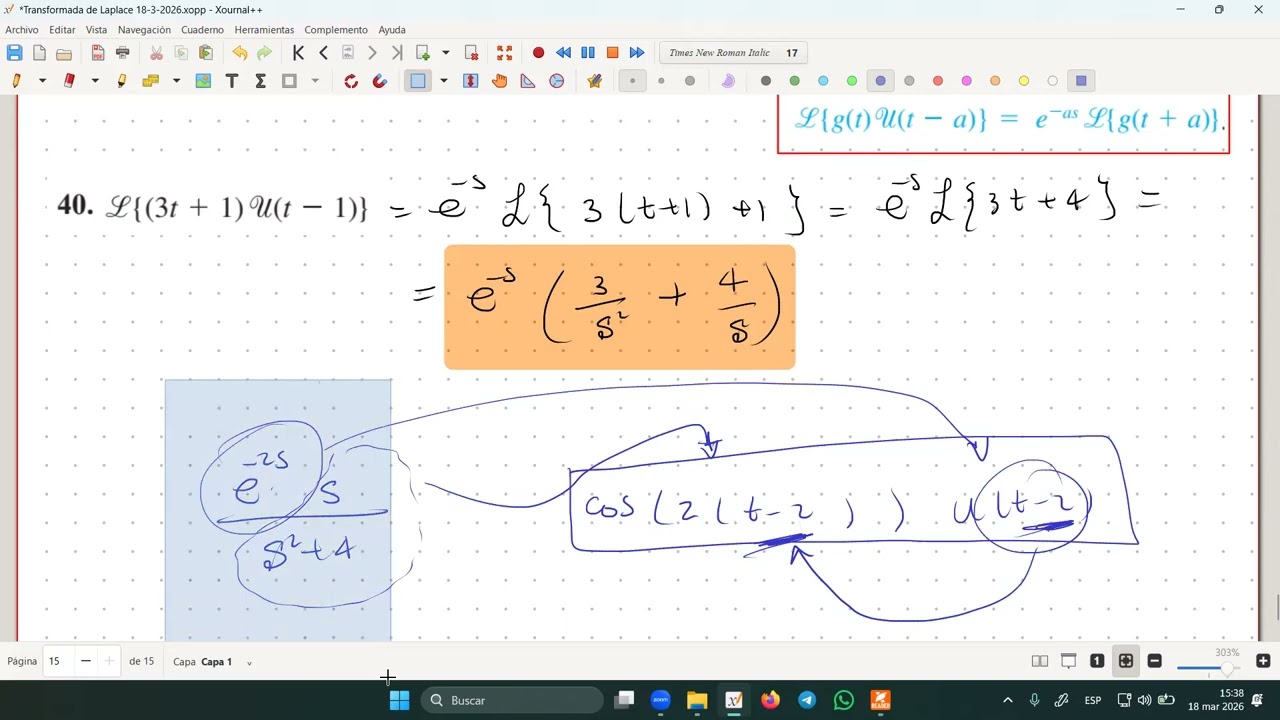 *Transformada de Laplace 18-3-2026.xopp - Xournal++
Archivo Editar Vista Navegación Cuaderno Herramientas Complemento Ayuda
Times New Roman Italic 17
ℒ{g(t) 𝒰(t − a)} = e^{−as} ℒ{g(t + a)}.
40. ℒ{(3t + 1) 𝒰(t − 1)} = e^{-s} ℒ{ 3(t+1) +1 } = e^{-s} ℒ{3t+4} =
= e^{-s} ( 3/s² + 4/s )
e^{-2s} s / s²+4
cos (2(t-2)) u(t-2)
Página 15 de 15 Capa Capa 1 303%
Buscar zoom READER ESP 15:38
18 mar 2026